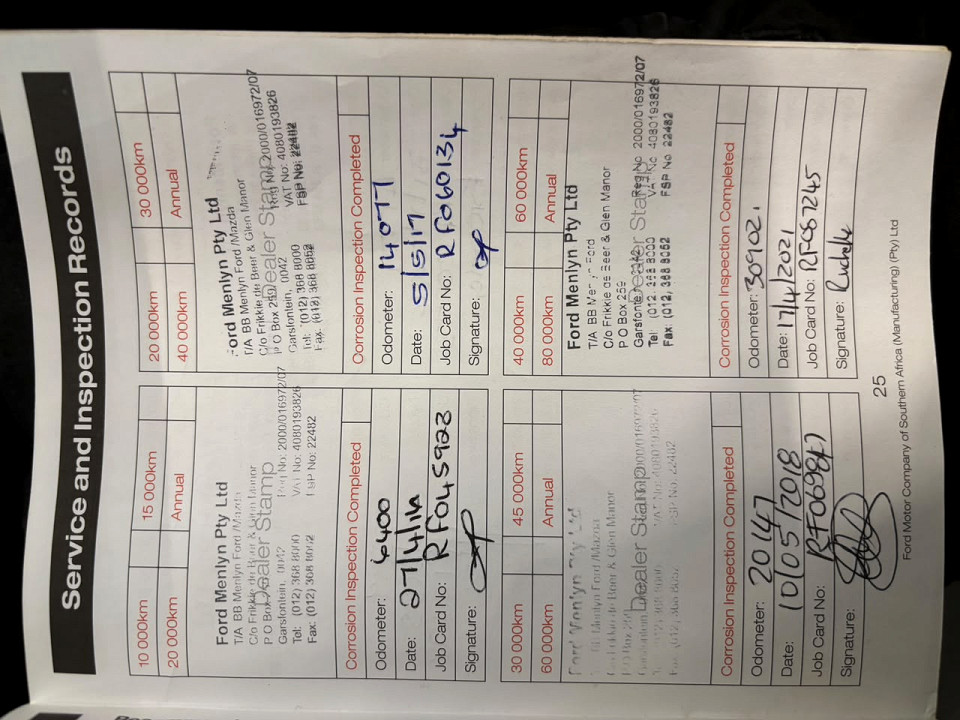 Service and Inspection Records
10 000km 15 000km
20 000km Annual
Ford Menlyn Pty Ltd
T/A BB Menlyn Ford/Mazda
C/o Frikkie de Beer & Glen Manor
P O Box Dealer Stamp
Garsfontein, 0042 Reg No: 2000/016972/07
Tel: (012) 368 8000 VAT No: 4080193826
Fax: (012) 368 8062 FSP No: 22482
Corrosion Inspection Completed
Odometer: 6400
Date: 27/4/
Job Card No: RF045923
Signature:
20 000km 30 000km
40 000km Annual
Ford Menlyn Pty Ltd
T/A BB Menlyn Ford/Mazda
C/o Frikkie de Beer & Glen Manor
P O Box 259 Dealer Stamp Reg No: 2000/016972/07
Garsfontein, 0042 VAT No: 4080193826
Tel: (012) 368 8000 FSP No: 22482
Fax: (012) 368 8062
Corrosion Inspection Completed
Odometer: 14077
Date: 5/5/17
Job Card No: RF060134
Signature:
30 000km 45 000km
60 000km Annual
Ford Menlyn Pty Ltd
T/A BB Menlyn Ford/Mazda
C/o Frikkie de Beer & Glen Manor
P O Box
Garsfontein Dealer Stamp 2000/016972/07
VAT No: 4080193826
FSP No: 22482
Corrosion Inspection Completed
Odometer: 20147
Date: 10/05/2018
Job Card No: RF069847
Signature:
40 000km 60 000km
80 000km Annual
Ford Menlyn Pty Ltd
T/A BB Menlyn Ford
C/o Frikkie de Beer & Glen Manor
P O Box 259
Garsfontein Dealer Stamp Reg No 2000/016972/07
Tel: (012) 368 8000 VAT No 4080193826
Fax: (012) 368 8062 FSP No 22482
Corrosion Inspection Completed
Odometer: 30902.
Date: 17/4/2021
Job Card No: RFO67245
Signature:
25
Ford Motor Company of Southern Africa (Manufacturing) (Pty) Ltd